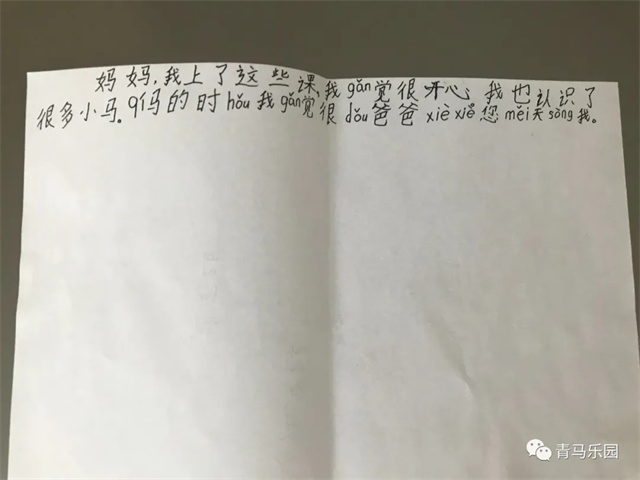 妈妈,我上了这些课,我gǎn觉很开心 我也认识了
很多小马。q们马的时hǒu我gǎn觉很dǒu爸爸xièxiě您měi天sòng我。
青马乐园